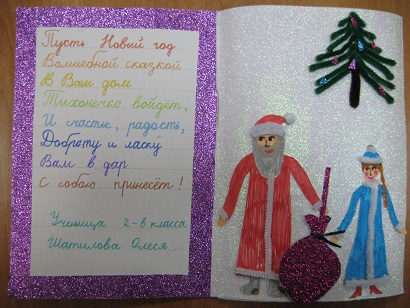 Пусть Новый год
Волшебной сказкой
В Ваш дом
Тихонечко войдёт,
И счастье, радость,
Доброту и ласку
Вам в дар
С собою принесёт!
Ученица 2-в класса
Шатилова Олеся